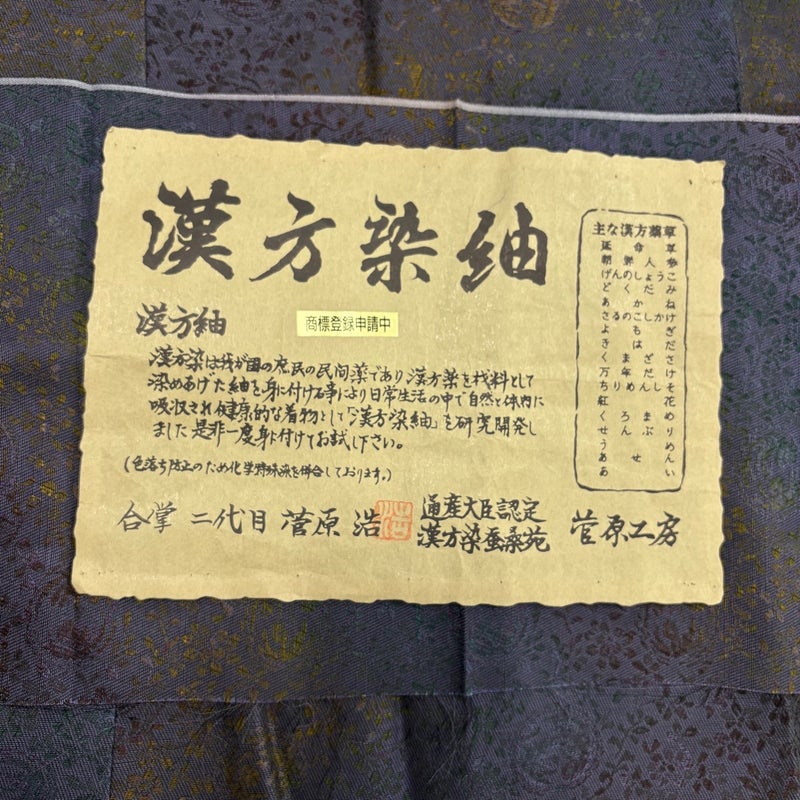 漢方染紬
漢方紬
商標登録申請中
漢方染は我が国の庶民の民間薬であり漢方薬を材料として
染めあげた紬を身に付ける事により日常生活の中で自然と体内に
吸収され健康的な着物として「漢方染紬」を研究開発し
ました是非一度身に付けてお試し下さい。
(色落ち防止のため化学特殊染を併合しております。)
合掌 二代目 菅原 浩
通産大臣認定
漢方染蚕桑苑
菅原工房
主な漢方薬草
延命草
朝鮮人参
げんのしょうこ
どくだみ
あかね
さるのこしかけ
よもぎ
きはだ
くまざさ
万年だけ
ちりめんしそ
紅花
くろまめ
せんぶり
うめ
あせん
あい